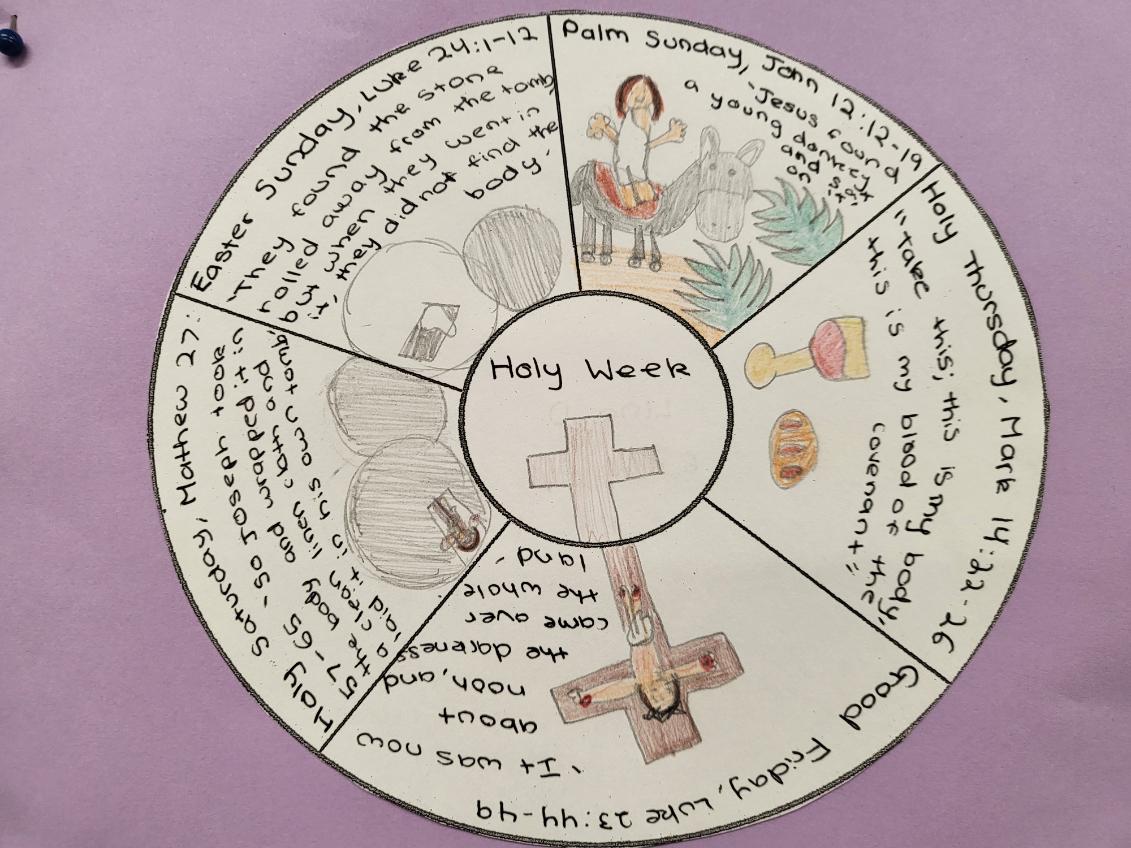 Holy Week
Palm Sunday, John 12:12-19
'Jesus found
a young donkey
and sat
on it'
Holy Thursday, Mark 14:22-26
"take this; this is my body;
this is my blood of the
covenant"
Good Friday, Luke 23:44-49
'It was now
about
noon, and
the darkness
came over
the whole
land'
Holy Saturday, Matthew 27:
57-65 'So Joseph took
the body and wrapped it in
a clean linen cloth and
laid it in his own tomb'
Easter Sunday, Luke 24:1-12
'They found the stone
rolled away from the tomb,
but when they went in
it, they did not find the
body.'